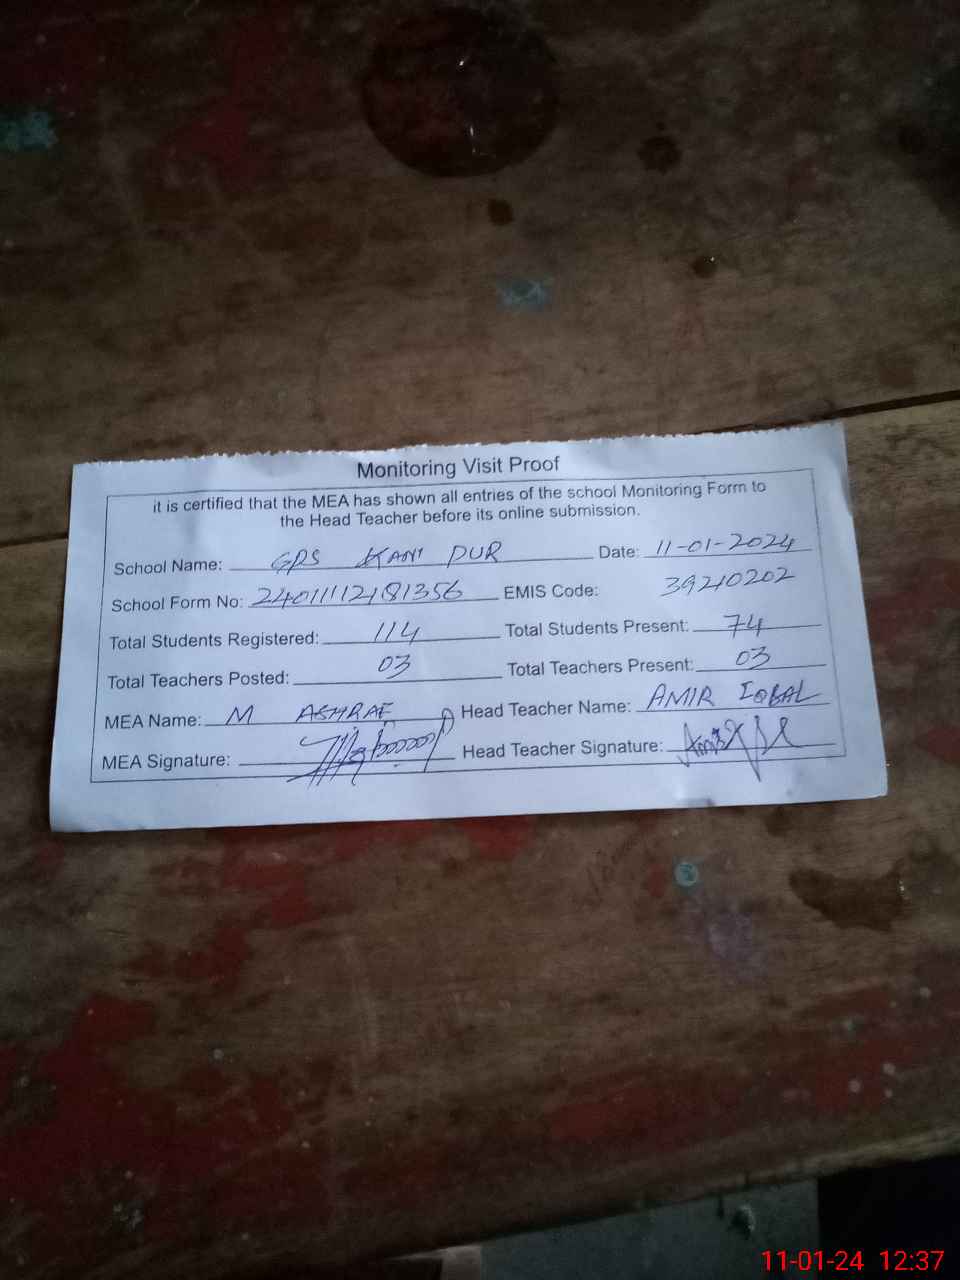 Monitoring Visit Proof
it is certified that the MEA has shown all entries of the school Monitoring Form to
the Head Teacher before its online submission.
School Name: GPS KANI PUR Date: 11-01-2024
School Form No: 24011112181356 EMIS Code: 39210202
Total Students Registered: 114 Total Students Present: 74
Total Teachers Posted: 03 Total Teachers Present: 03
MEA Name: M ASHRAF Head Teacher Name: AMIR IQBAL
MEA Signature: Head Teacher Signature:
11-01-24 12:37